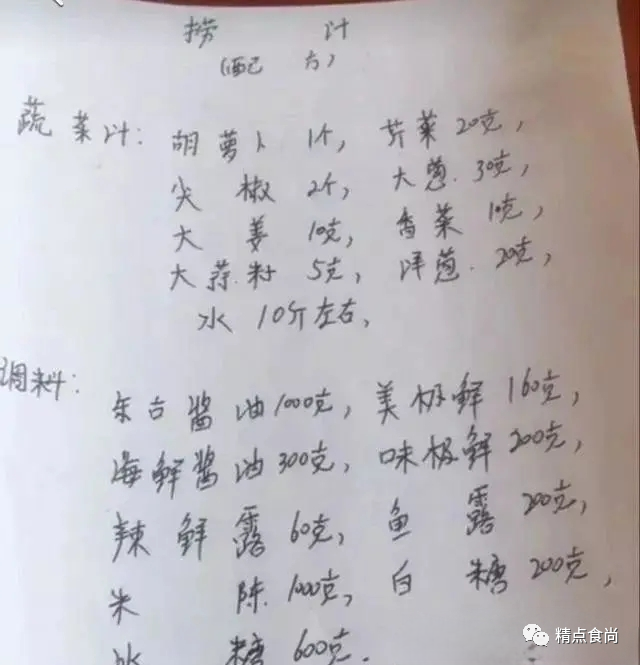 捞 汁
(配 方)
蔬菜汁: 胡萝卜 1个, 芹菜 20克,
尖 椒 2个, 大葱. 30克,
大 姜 10克, 香菜 10克,
大蒜籽 5克, 洋葱. 20克,
水 10斤左右,
调料:
东古酱油 1000克, 美极鲜 160克,
海鲜酱油 300克, 味极鲜 200克,
辣鲜露 60克, 鱼 露 200克,
米 陈 1000克, 白 糖 200克,
冰 糖 600克.
精点食尚